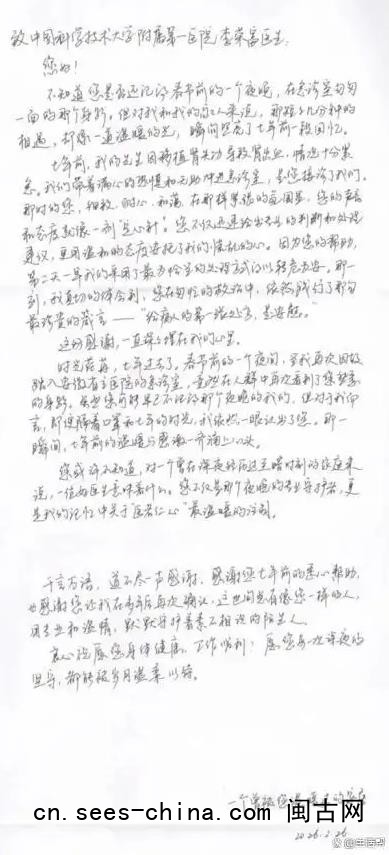 致中国科学技术大学附属第一医院 李荣富医生:
您好!
不知道您是否还记得春节前的一个夜晚,在急诊室匆匆
一面的那个身影。但对我和我的家人来说,那短短几分钟的
相遇,却像一道温暖的光,瞬间照亮了七年前一段回忆。
七年前,我的先生因 导致胃出血,情况十分紧
急。我们带着满心的恐惧和无助冲进急诊室,是您接诊了我们。
那时的您,细致、耐心、和蔼,在那样紧张的氛围里,您的声音
和态度就像一剂“定心针”。您不仅迅速给出专业的判断和处理
建议,更用温和的态度安抚了我们慌乱的心。因为您的帮助,
第二天一早我们采用了最为恰当的处理方式得以转危为安。那一
刻,我真切的体会到,您在匆忙的救治中,依然践行了那句
最珍贵的箴言——“给病人的第一张处方,是安慰。”
这份感谢,一直深深埋在我的心里。
时光荏苒,七年过去了。春节前的一个夜间,当我再次因故
踏入安徽省立医院的急诊室,竟然在人群中再次看到了您熟悉
的身影。虽然您可能早已不记得那个夜晚的我们,但对于我而
言,即便隔着口罩和七年的时光,我依然一眼认出了您。那一
瞬间,七年前的温暖与感激一齐涌上心头。
您或许不知道,对一个曾在深夜经历过至暗时刻的家庭来
说,一位好医生意味着什么。您不仅是那个夜晚的专业守护者,更
是我的记忆中关于“医者仁心”最温暖的注脚。
千言万语,道不尽一声感谢。感谢您七年前的悉心帮助,
也感谢您让我在多年后再次确认,这世间总有像您一样的人,
用专业和温情,默默守护着素不相识的陌生人。
衷心祝愿您身体健康,工作顺利!愿您每一次深夜的
坚守,都能被岁月温柔以待。
一个曾被您温暖过的家属
2026.2.26
cn.sees-china.com 闽古网